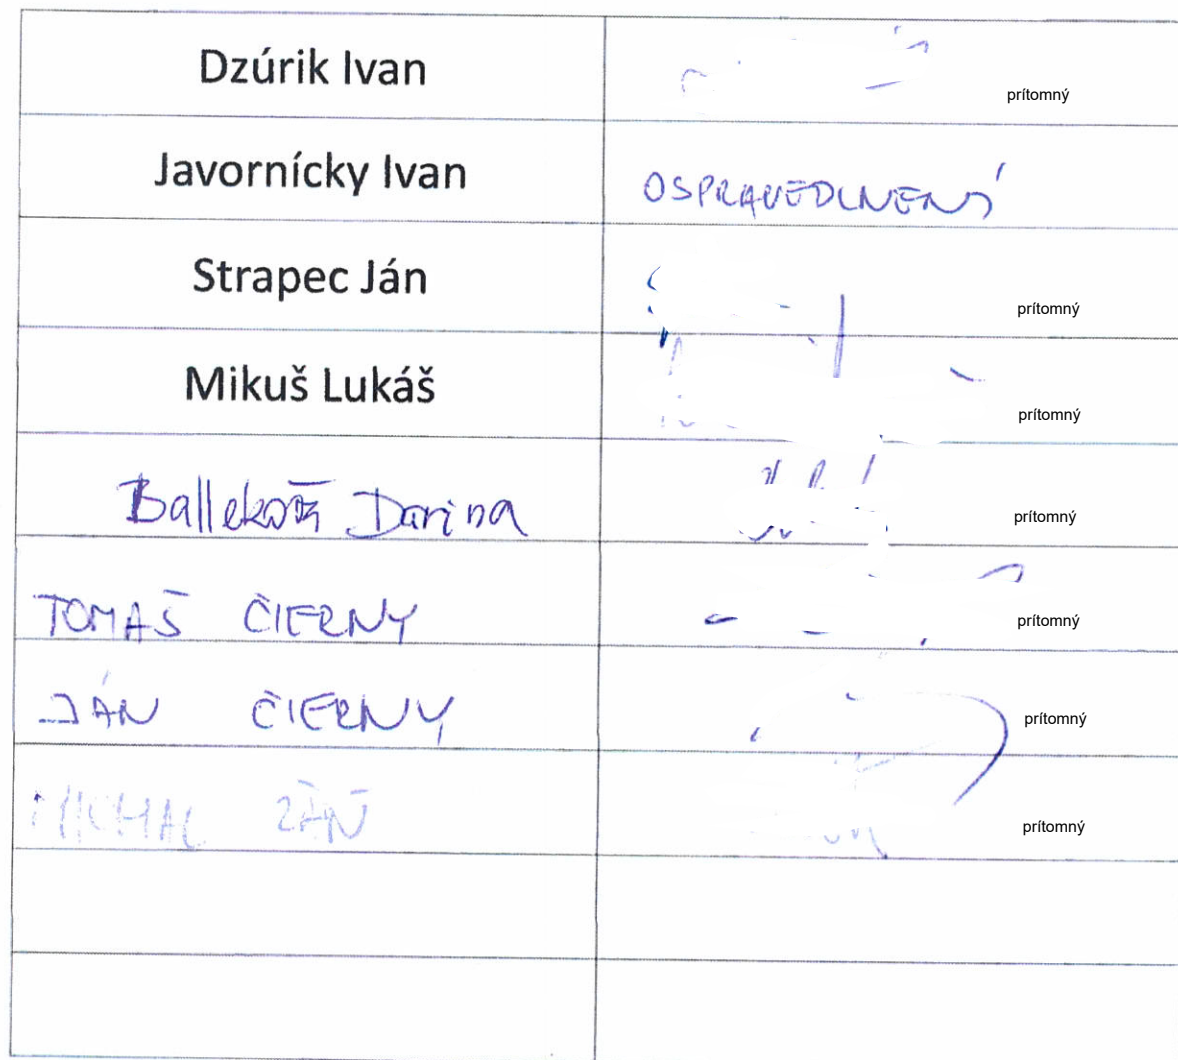 Dzúrik Ivan prítomný
Javornícky Ivan OSPRAVEDLNENÝ
Strapec Ján prítomný
Mikuš Lukáš prítomný
Balleková Darina prítomný
TOMAŠ ČIERNY prítomný
JÁN ČIERNY prítomný
MICHAL prítomný